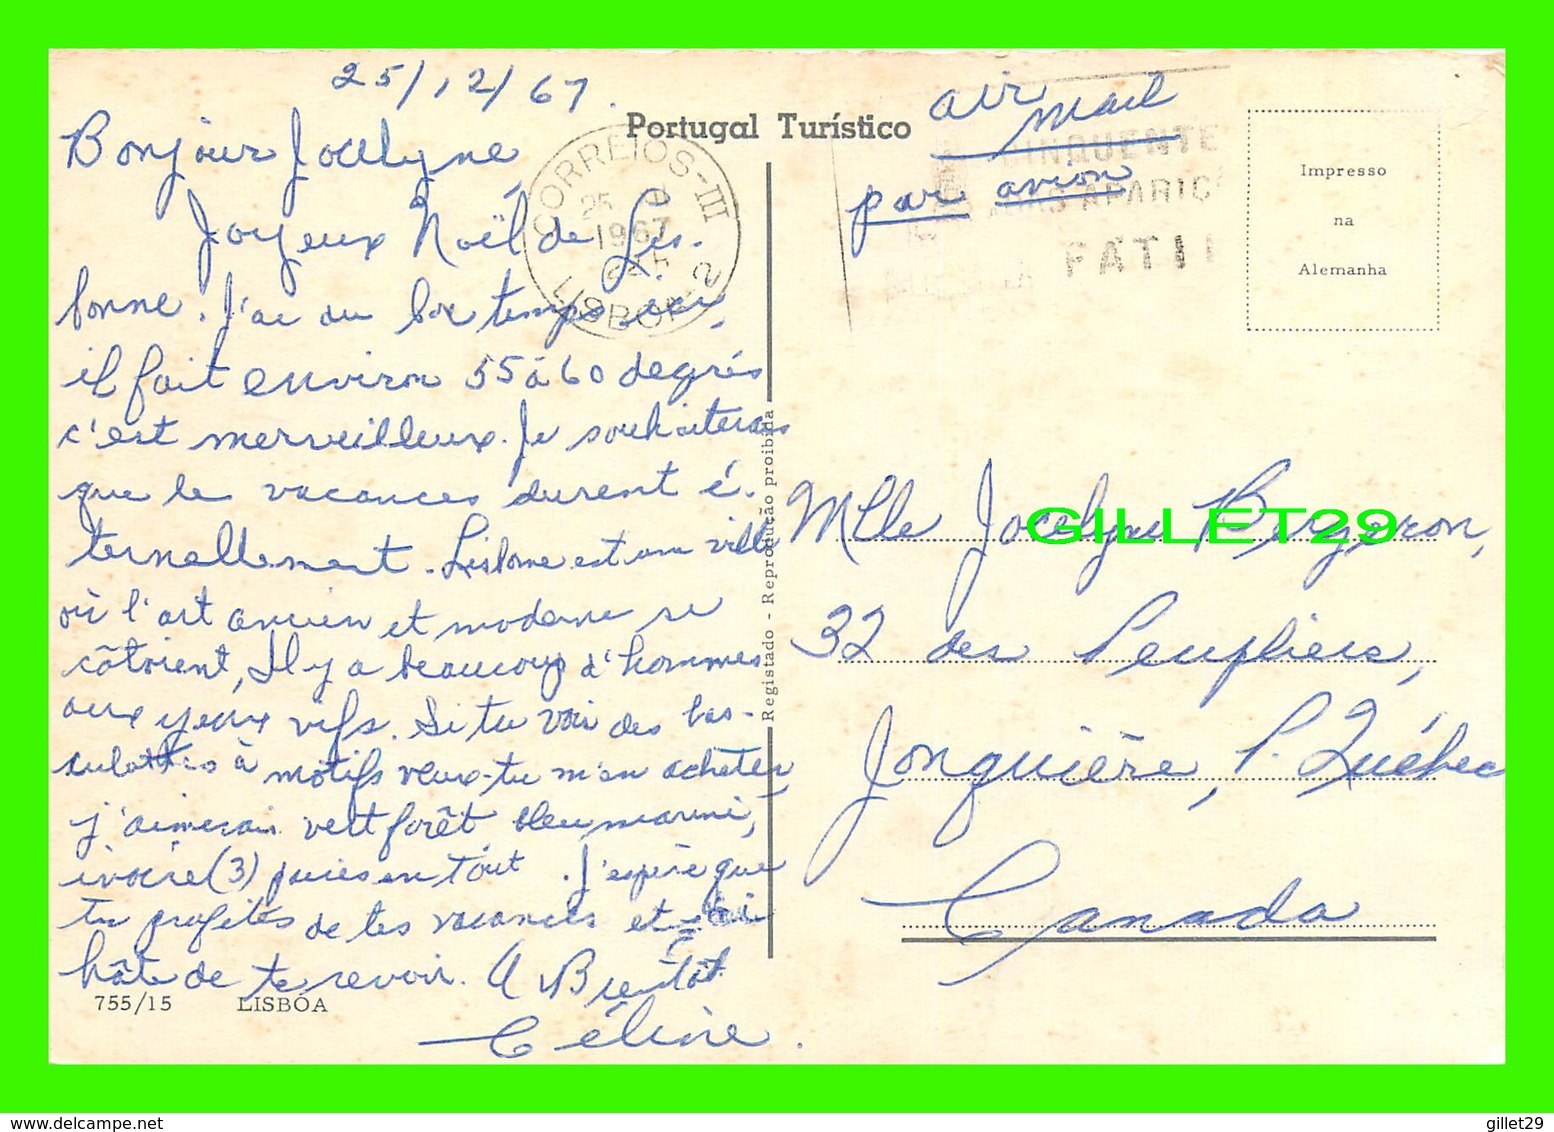 25/12/67.
Bonjour Jocelyne,
Joyeux Noël de Lis-
bonne. J'ai du bon temps ici,
il fait environ 55 à 60 degrés
c'est merveilleux. Je souhaiterais
que les vacances durent é-
ternellement. Lisbonne est une ville
où l'art ancien et moderne se
côtoient, Il y a beaucoup d'hommes
aux yeux vifs. Si tu vois des bas-
culottes à motifs veux-tu m'en acheter
j'aimerais vert forêt bleu marine,
ivoire (3) paires en tout. J'espère que
tu profites de tes vacances et
hâte de te revoir. A Bientôt
Céline.
755/15 LISBÔA
Portugal Turístico
CORREIOS-III
25
1967
LISBOA-2
Registado - Reprodução proibida
air mail
par avion
CINQUENTE
APARIC
FATI
Impresso
na
Alemanha
Mlle Jocelyne Bergeron,
32 des Peupliers,
Jonquière, P. Québec
Canada
GILLET29
gillet29